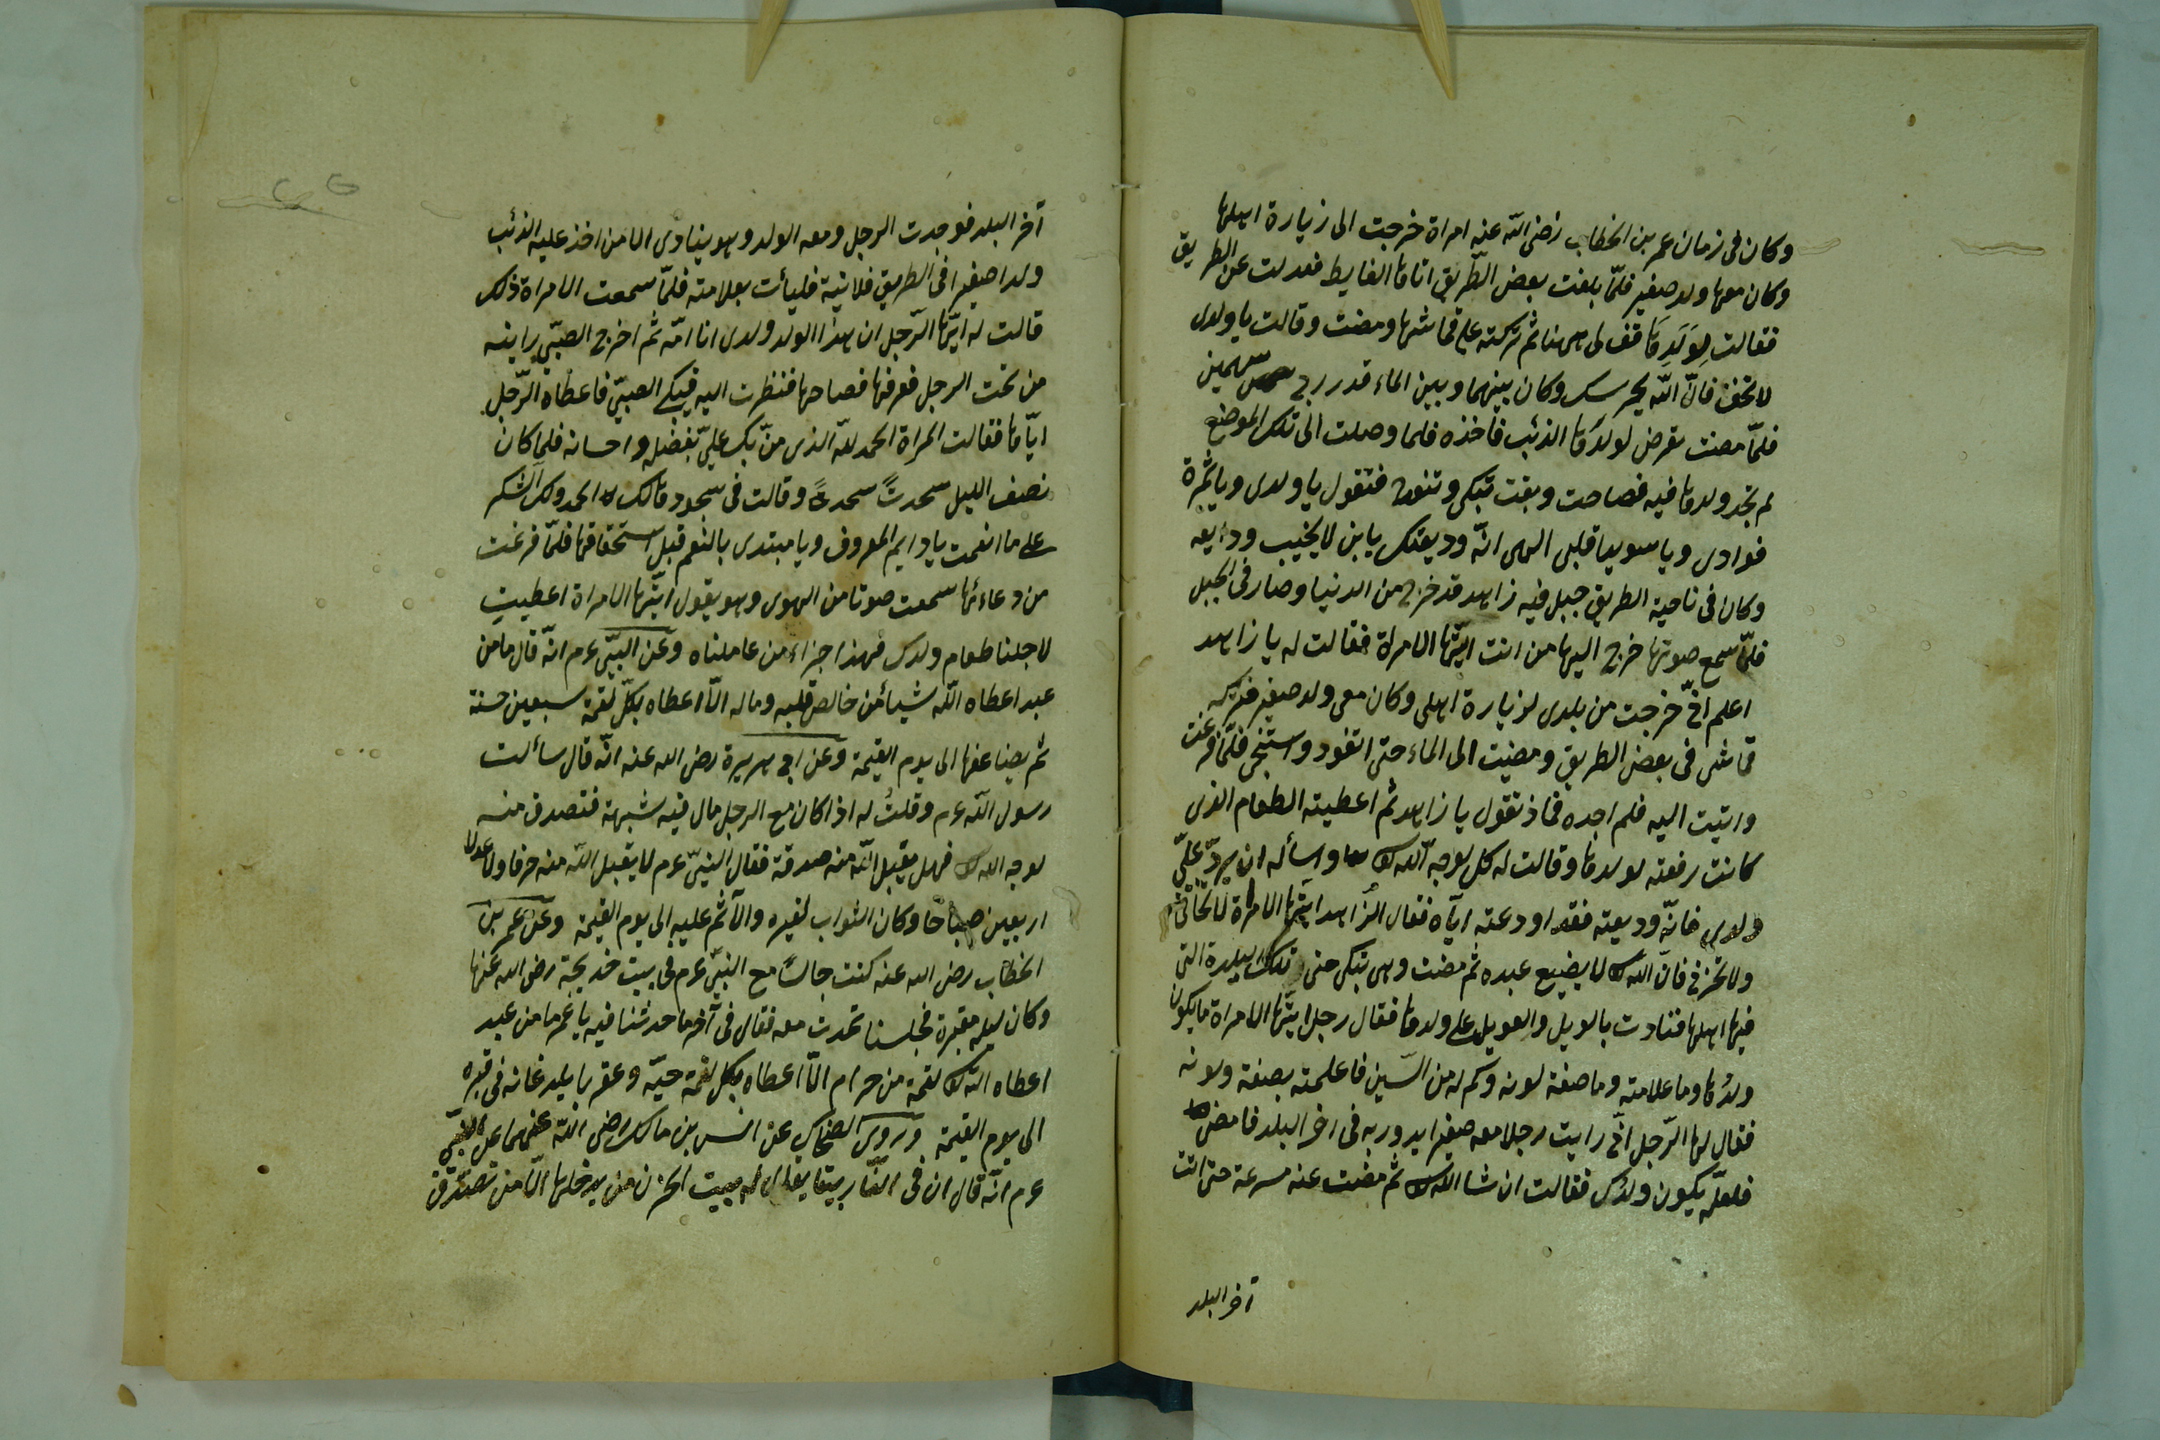 وكان فى زمان عمر بن الخطاب رضى الله عنه امراة خرجت الى زيارة اهلها
وكان معها ولد صغير فلمّا بلغت بعض الطّريق اتاها الغايط فعدلت عن الطريق
فقالت لِوَلَدِهَا قف لى ههنا ثم تركته على قماشها ومضت وقالت يا ولدى
لا تخف فانّ الله يحرسك وكان بينهما وبين الماء قدر رمى سهمين
فلمّا مضت تعرض لولدها الذئب فاخذه فلما وصلت الى تلك الموضع
لم تجد ولدها فيه فصاحت وبقت تبكى وتنوح فتقول يا ولدى ويا ثمرة
فوادى ويا سويدا قلبى الهى انّه وديعتك يا من لا يخيب ودايعه
وكان فى ناحية الطريق جبل فيه زاهد قد خرج من الدنيا وصار فى الجبل
فلمّا سمع صوتها خرج اليها من انت ايّتها الامراة فقالت له يا زاهد
اعلم انّى خرجت من بلدى لزيارة اهلى وكان معى ولد صغير فتركته
قماشى فى بعض الطريق ومضيت الى الماء حتى اتغود واستنجى فلمّا فرغت
واتيت اليه فلم اجده فماذ تقول يا زاهد ثم اعطيته الطعام الذى
كانت رفعته لولدها وقالت له كل لوجه الله واسأله ان يردّ علىّ
ولدى فانّه وديعته فقد اودعته ايّاه فقال الزاهد ايتها الامراة لا تخافى
ولا تحزنى فانّ الله لا يضيع عبده ثم مضت وهى تبكى حتى تلك البلدة التى
فيها اهلها فنادت بالويل والعويل على ولدها فقال رجل ايّتها الامراة ما يكون
ولدُها وما علامته وما صفة لونه وكم له من السّنين فاعلمته بصفة ولونه
فقال لها الرّجل انّى رايت رجلا معه صغيرا يدور به فى اخر البلد فامض
فلعلّه يكون ولدك فقالت ان شا الله ثم مضت عنه مسرعة حتى اتت
آخر البلد
آخر البلد فوجدت الرجل ومعه الولد وهو ينادى الا من اخذ عليه الذئب
ولدا صغيرا فى الطريق فلانية فليأت بعلامته فلمّا سمعت الامراة ذلك
قالت له ايّها الرّجل ان هذا الولد ولدى انا امّه ثم اخرج الصبّى راينه
من تحت الرجل فعرفها فصاحها فنظرت اليه فيبكى الصبىّ فاعطاه الرّجل
ايّاها فقالت المراة الحمد لله الذى منّ بك علىّ بفضله واحسانه فلما كان
نصف الليل سجدتً سجدةً وقالت فى سجودها لك الحمد ولك الشكر
على ما انعمت يا دايم المعروف ويا مبتدى بالنعم قبل استحقاقها فلمّا فرغت
من دعائها سمعت صوتا من الهوى وهو يقول ايّتها الامراة اعطيتِ
لاجلنا طعام ولدك فهذا جزاء من عاملناه وعن النبّى عم انّه قال ما من
عبد اعطاه الله شيأ من خالص قلبه وماله الّا اعطاه بكلّ لقمة سبعين حسنة
ثم يضاعفها الى يوم القيمة وعن ابى هريرة رضى الله عنه انّه قال سألت
رسول الله عم وقلتُ له اذا كان مع الرجل مال فيه شبهة فتصدق منه
لوجه الله فهل يقبل الله منه صدقة فقال النبىّ عم لا يقبل الله منه صرفا ولا عدلا
اربعين صباحًا وكان الثواب لغيره والآثم عليه الى يوم القيمة وعن عمر بن
الخطاب رضى الله عنه كنت جالسًا مع النبىّ عم فى بيت خديجة رضى الله عنها
وكان ليله مقمرة فجلسنا نحدث معه فقال فى آخر ما حدثنا فيه يا عمر ما من عبد
اعطاه الله لقمة من حرام الّا اعطاه بكل لقمة حيّه وعقربا يلدغانه فى قبره
الى يوم القيمة وروى الضحاك عن انس بن مالك رضى الله عنهما عن النبىّ
عم انّه قال ان فى النّار بيتا يقال له بيت الحزن من يدخلها الّا من تصدّق